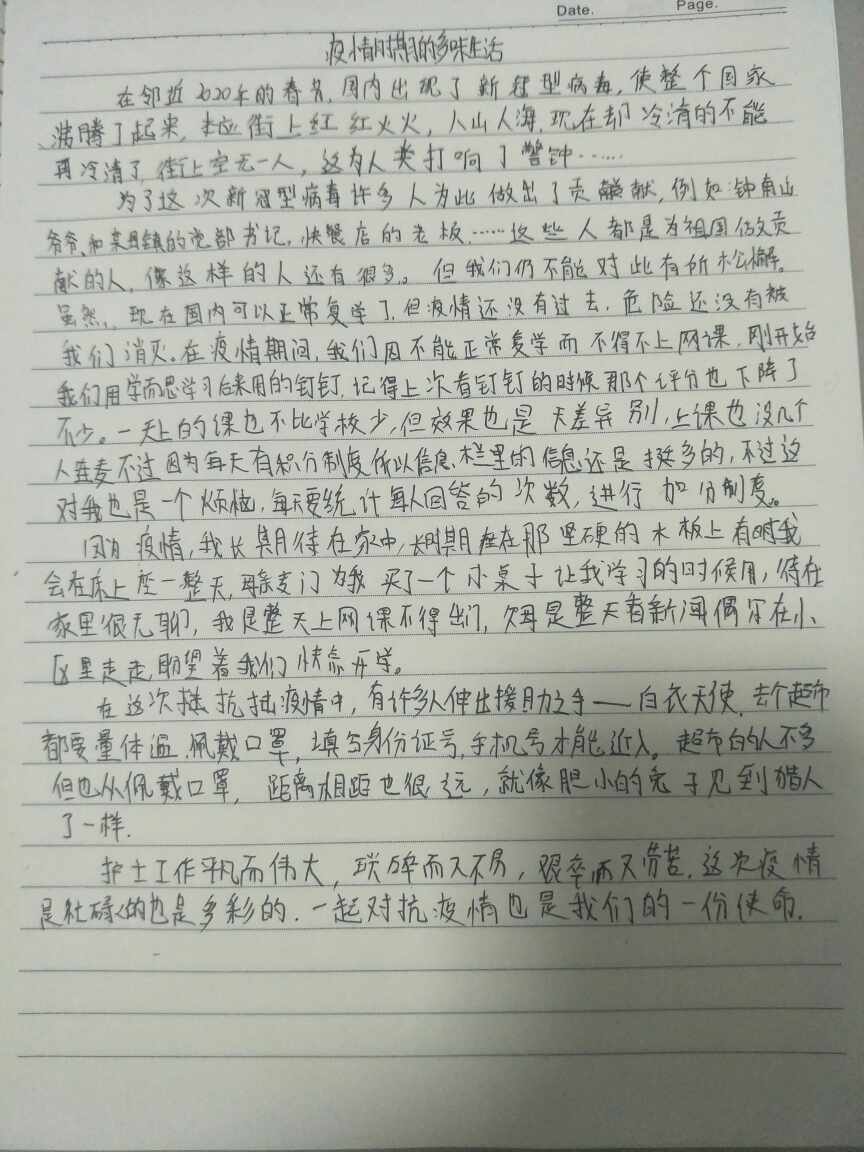 Date. Page.
疫情时期的多味生活
在邻近2020年的春节,国内出现了新冠型病毒,使整个国家
沸腾了起来,本应街上红红火火,人山人海,现在却冷清的不能
再冷清了,街上空无一人,这为人类打响了警钟……
为了这次新冠型病毒许多人为此做出了贡献,例如:钟南山
爷爷、和某县镇的党部书记,快餐店的老板……这些人都是为祖国做贡
献的人,像这样的人还有很多。但我们仍不能对此有所松懈。
虽然,现在国内可以正常复学了,但疫情还没有过去,危险还没有被
我们消灭。在疫情期间,我们因不能正常复学而不得不上网课,刚开始
我们用学而思学习后来用的钉钉,记得上次看钉钉的时候那个评分也下降了
不少。一天上的课也不比学校少,但效果也是天差异别,上课也没几个
人连麦不过因为每天有积分制度所以信息栏里的信息还是挺多的,不过这
对我也是一个烦恼,每天要统计每人回答的次数,进行加分制度。
因为疫情,我长期待在家中,长时期座在那坚硬的木板上有时我
会在床上座一整天,母亲专门为我买了一个小桌子让我学习的时候用,待在
家里很无聊,我是整天上网课不得出门,父母是整天看新闻偶尔在小
区里走走,期望着我们快点开学。
在这次抵抗疫情中,有许多人伸出援助之手——白衣天使,去个超市
都要量体温,佩戴口罩,填写身份证号,手机号才能近入。超市的人不多
但也从佩戴口罩,距离相距也很远,就像胆小的兔子见到猎人
了一样.
护士工作平凡而伟大,琐碎而又不易,艰辛而又劳苦.这次疫情
是忙碌的也是多彩的.一起对抗疫情也是我们的一份使命.